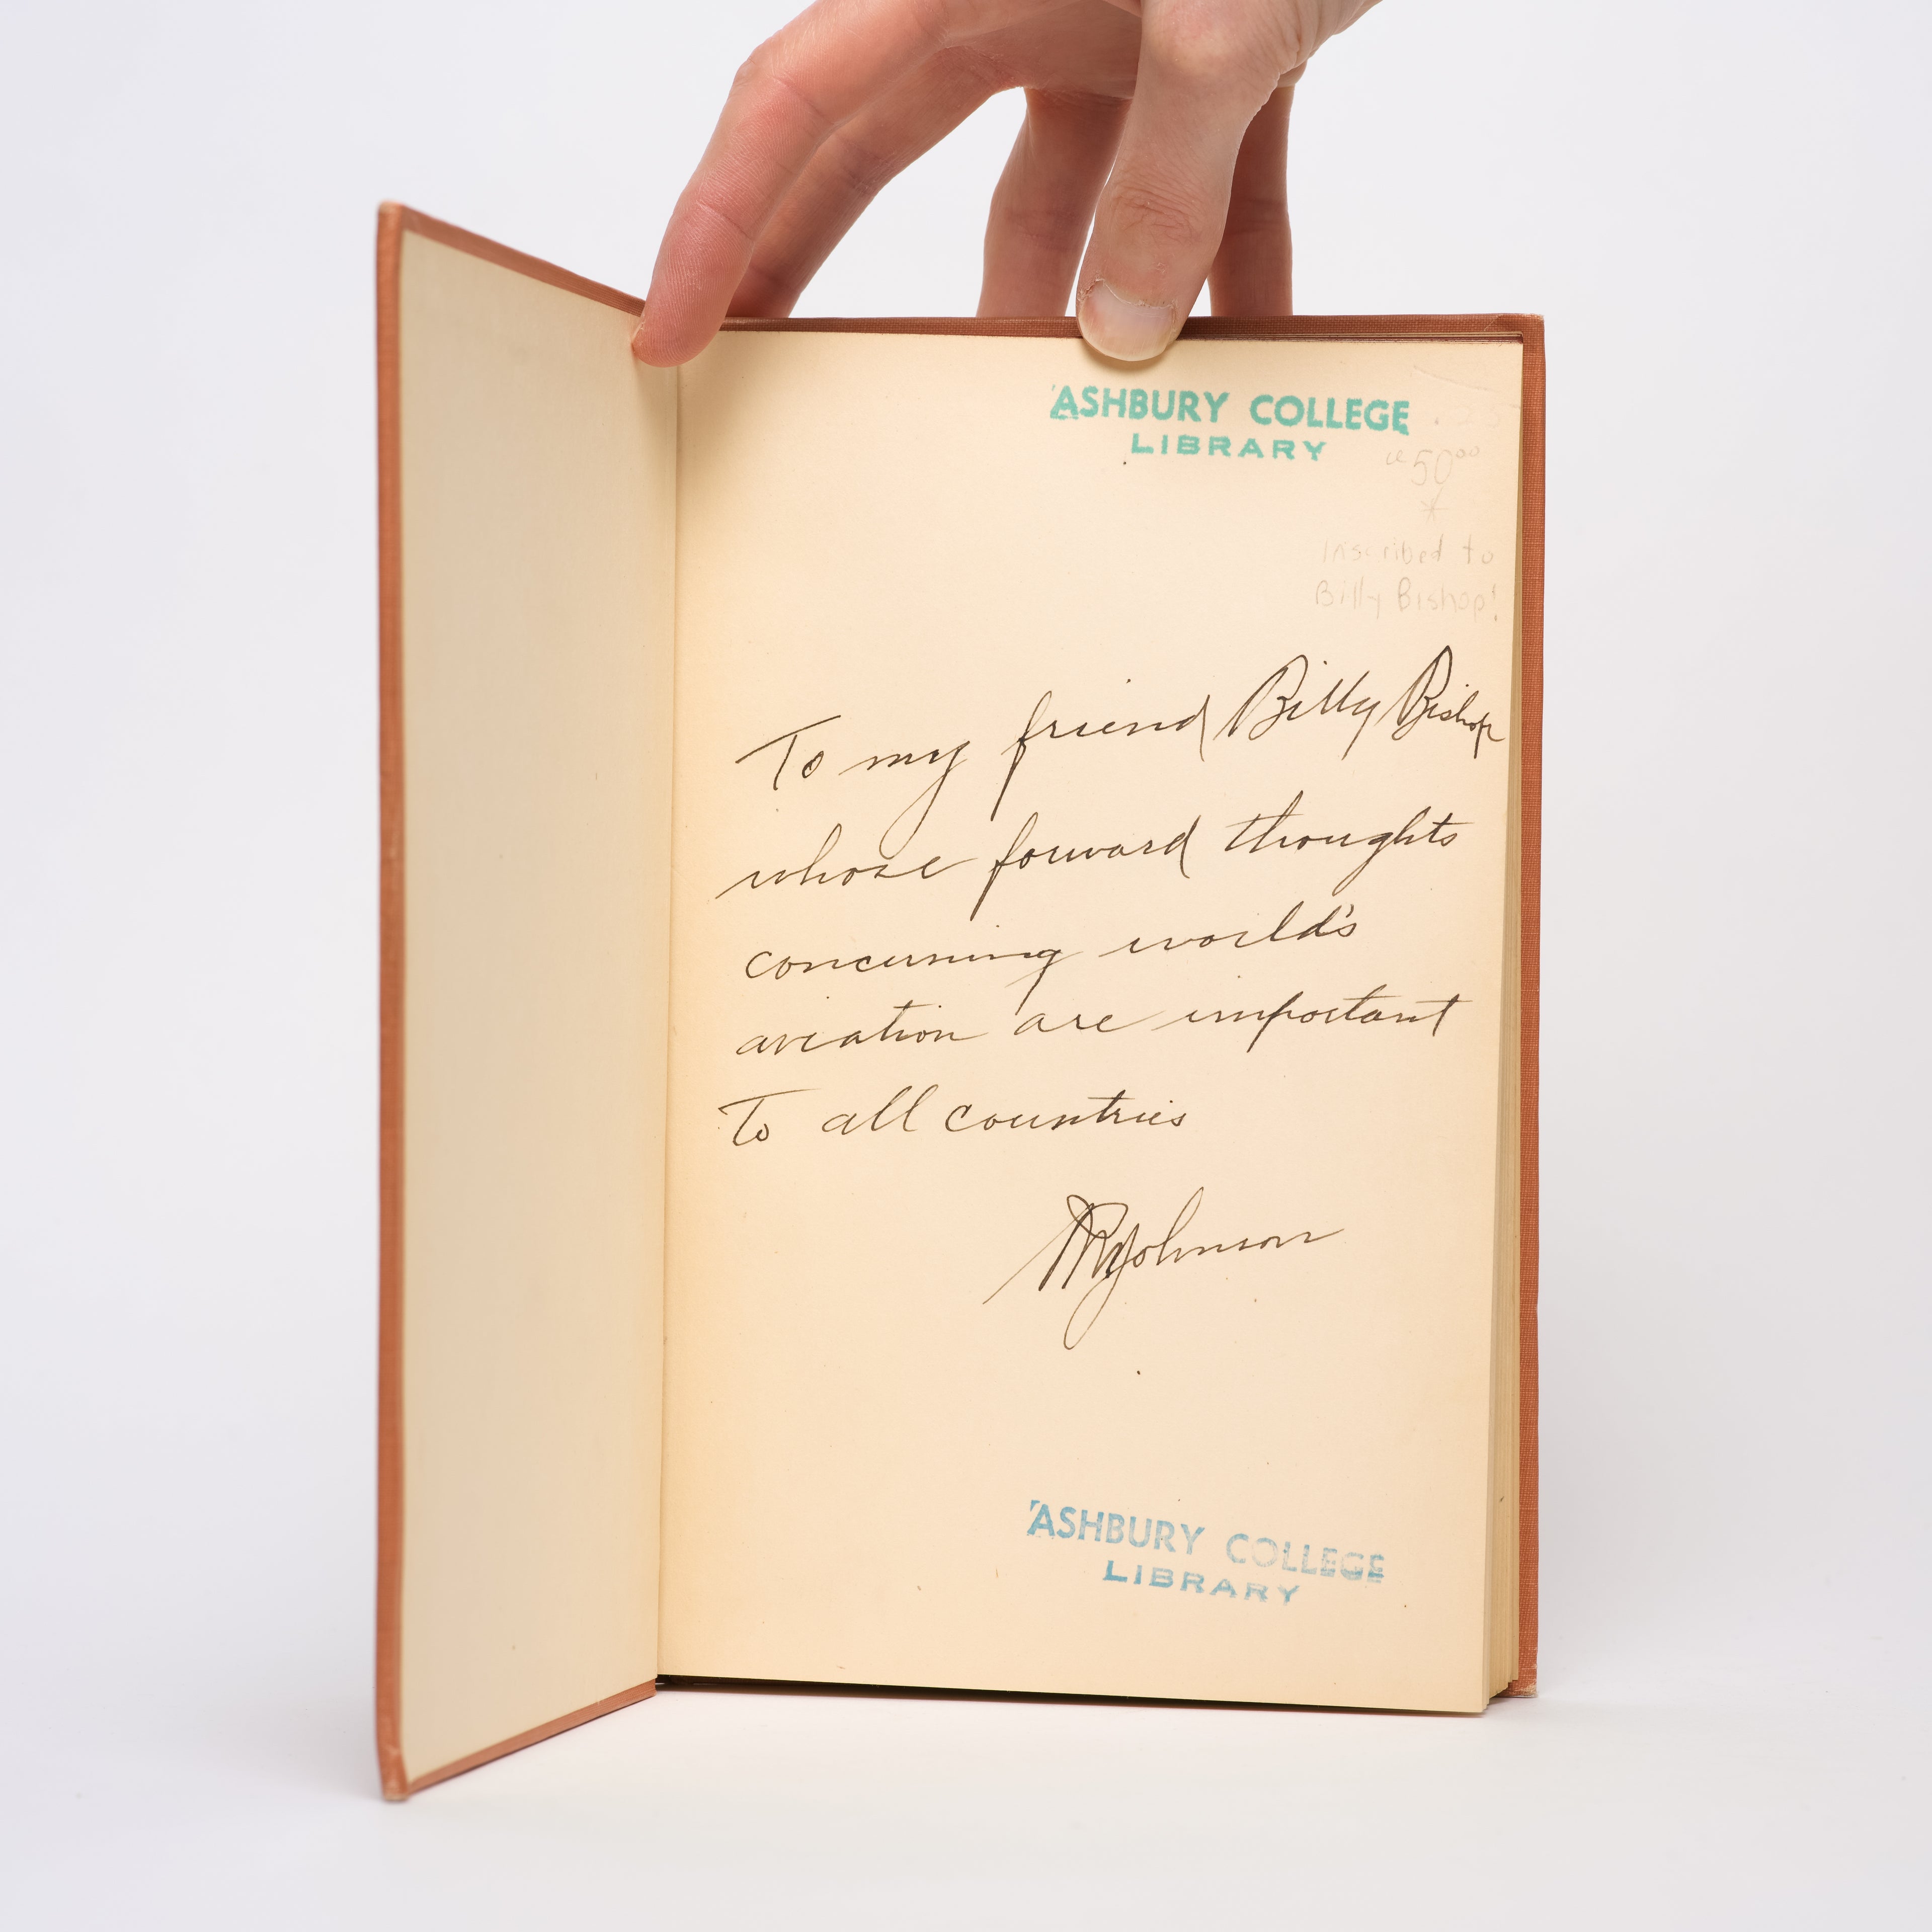 ASHBURY COLLEGE
LIBRARY
50⁰⁰
*
Inscribed to
Billy Bishop!
To my friend Billy Bishop
whose forward thoughts
concerning world's
aviation are important
To all countries
Johnson
ASHBURY COLLEGE
LIBRARY